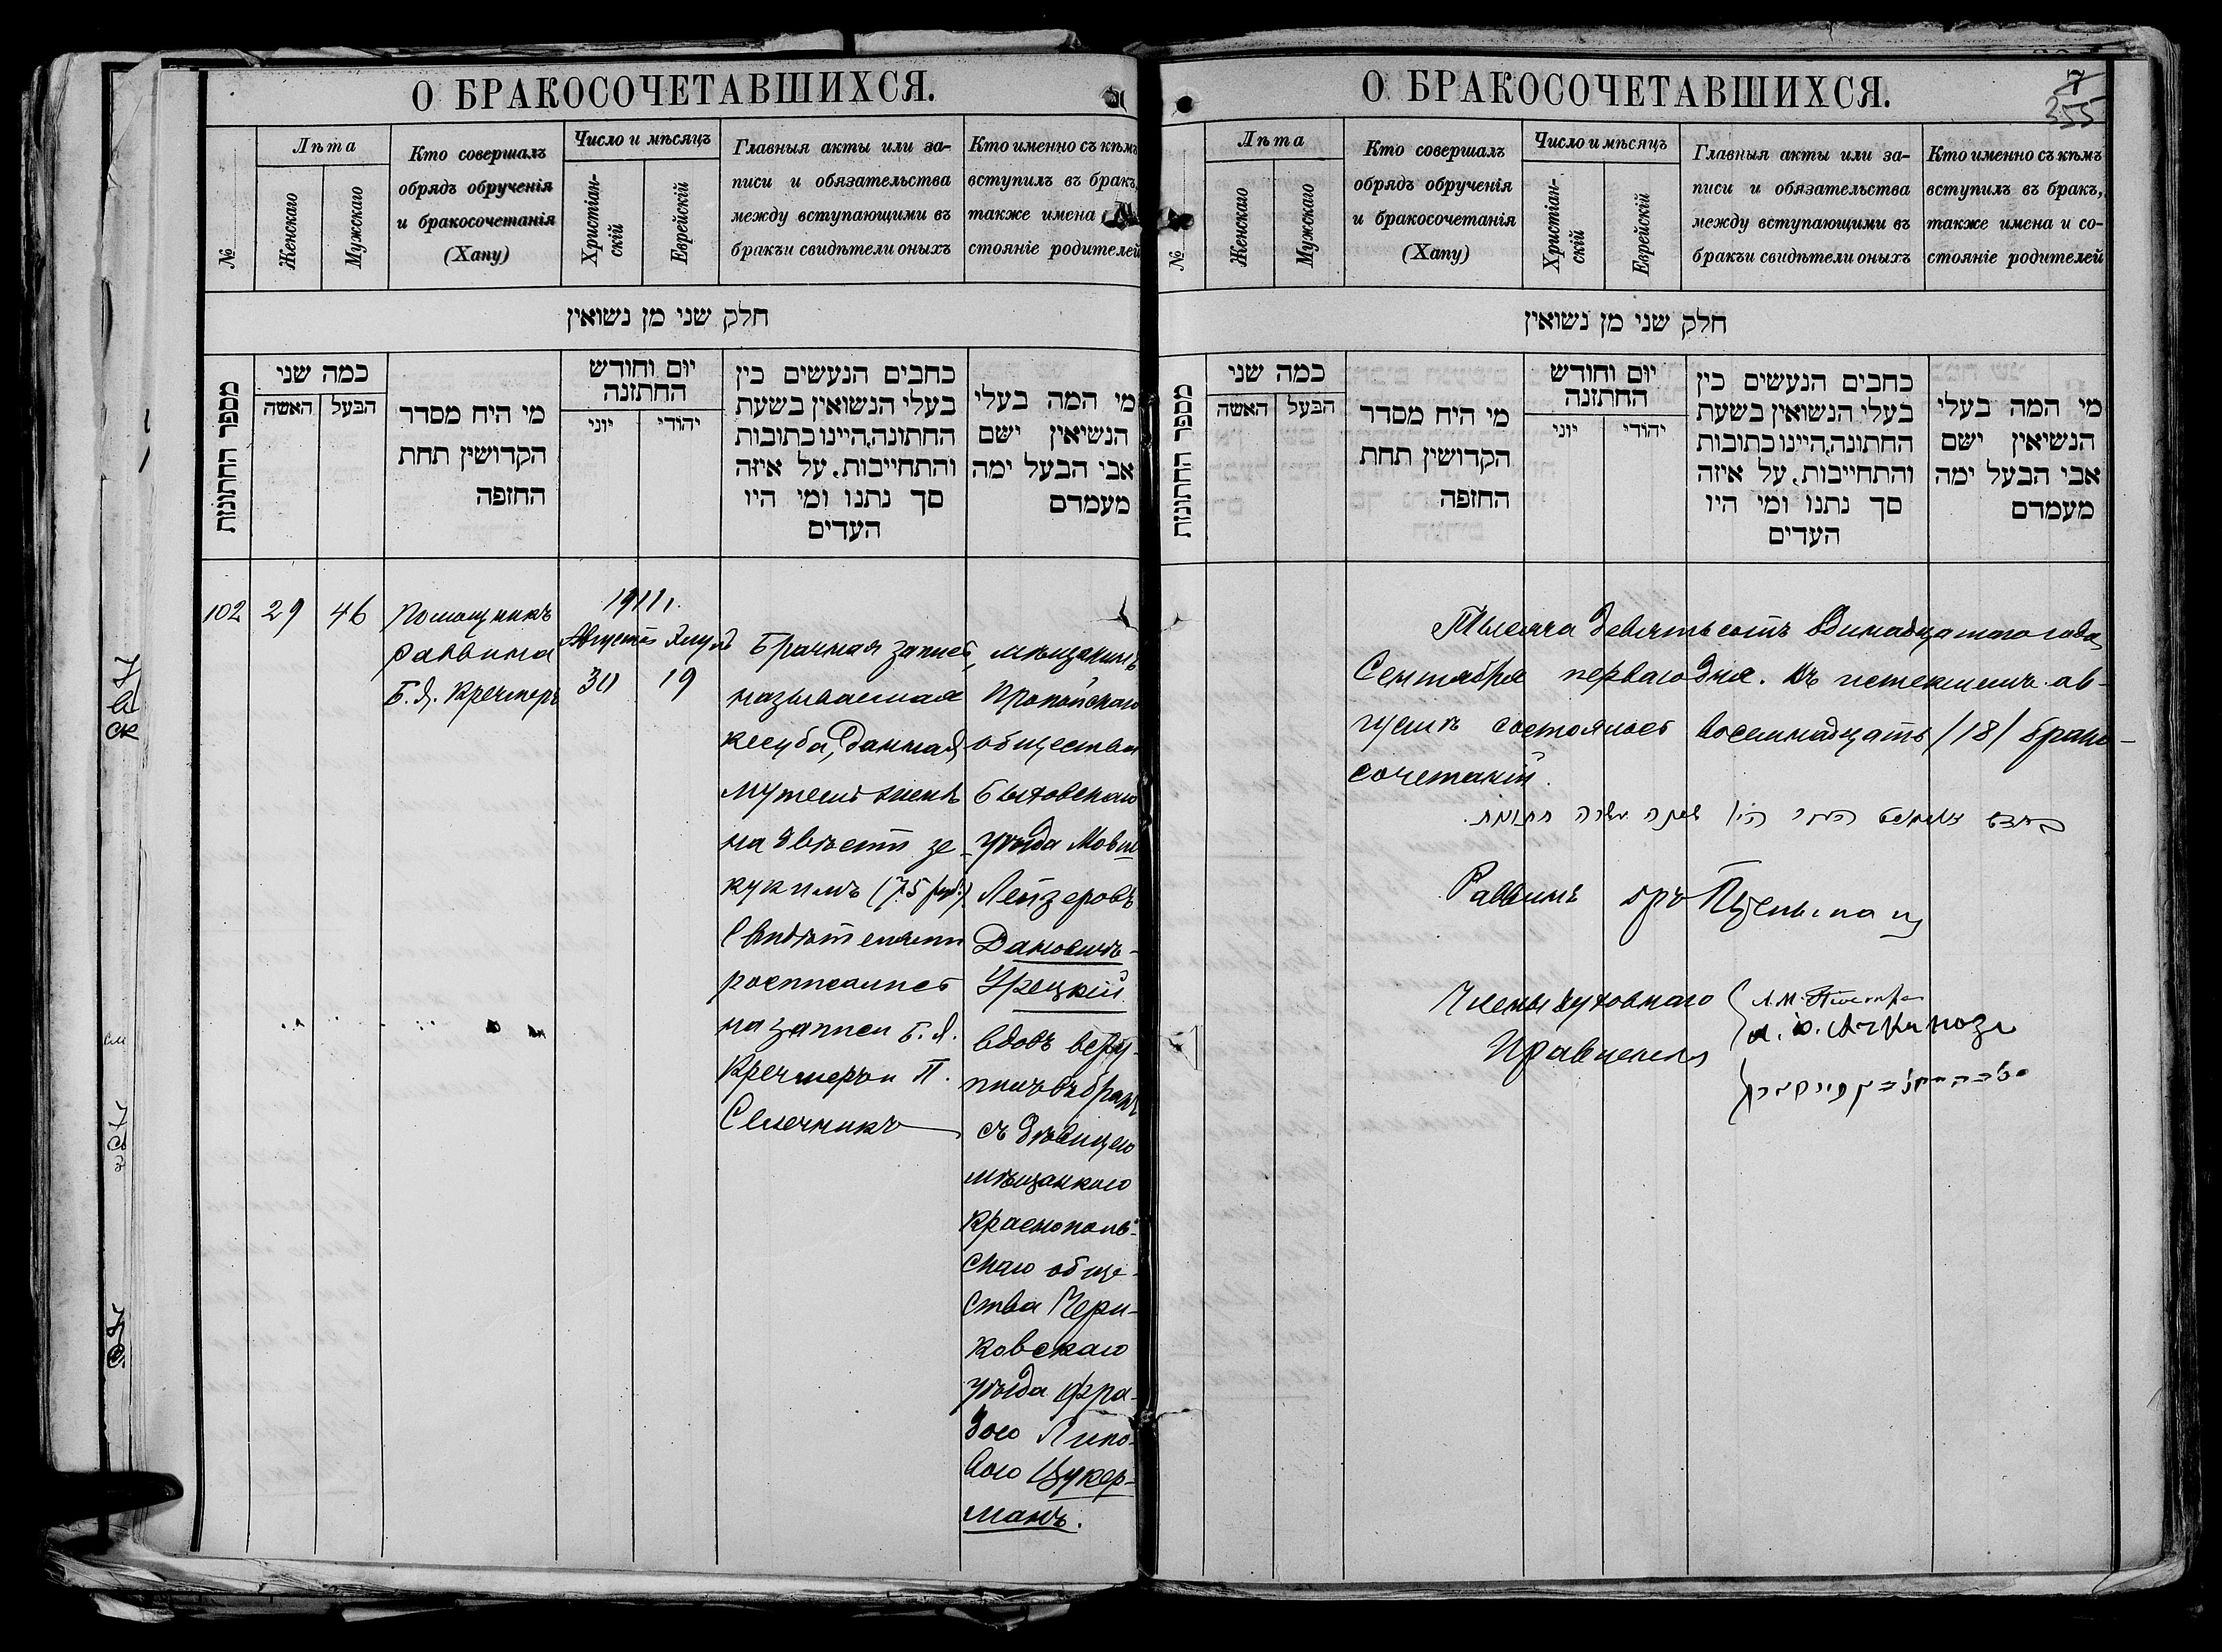 О БРАКОСОЧЕТАВШИХСЯ.
№
Лѣта
Женскаго
Мужскаго
Кто совершалъ
обрядъ обрученія
и бракосочетанія
(Хапу)
Число и мѣсяцъ
Христіан-
скій
Еврейскій
Главныя акты или за-
писи и обязательства
между вступающими въ
бракъи свидѣтели оныхъ
Кто именно съ кѣмъ
вступилъ въ бракъ,
также имена
стояніе родителей
חלק שני מן נשואין
מספר החתונות
כמה שני
האשה
הבעל
מי היח מסדר
הקדושין תחת
החופה
יום וחודש
החתונה
יוני
יהודי
כחבים הנעשים כין
בעלי הנשואין בשעת
החתונה,היינו כתובות
והתחייבות, על איזה
סך נתנו ומי היו
העדים
מי המה בעלי
הנשיאין ישם
אבי הבעל ימה
מעמדם
102
29
46
Помощникъ
раввина
Б.Я. Кречмеръ
1911 г.
Августъ Элулъ
30 19
Брачная запись,
называемая
кесуба, данная
мужемъ женѣ
на двѣсти зе-
кукимъ (75 руб.)
Свидѣтелями
росписались
на записи Б.Я.
Кречмеръ и П.
Сапечникъ
мѣщанинъ
Пропойскаго
общества
Быховскаго
уѣзда Мовша
Лейзеровъ
Дановичъ-
Урецкій
вдовъ всту-
пилъ въ бракъ
съ дѣвицею
мѣщанкою
Краснополь-
скаго обще-
ства Чери-
ковскаго
уѣзда Фра-
дою Липо-
вою Цукер-
манъ.
О БРАКОСОЧЕТАВШИХСЯ.
7
355
№
Лѣта
Женскаго
Мужскаго
Кто совершалъ
обрядъ обрученія
и бракосочетанія
(Хапу)
Число и мѣсяцъ
Христіан-
скій
Еврейскій
Главныя акты или за-
писи и обязательства
между вступающими въ
бракъи свидѣтели оныхъ
Кто именно съ кѣмъ
вступилъ въ бракъ,
также имена и со-
стояніе родителей
חלק שני מן נשואין
מספר החתונות
כמה שני
האשה
הבעל
מי היח מסדר
הקדושין תחת
החופה
יום וחודש
החתונה
יוני
יהודי
כחבים הנעשים כין
בעלי הנשואין בשעת
החתונה,היינו כתובות
והתחייבות, על איזה
סך נתנו ומי היו
העדים
מי המה בעלי
הנשיאין ישם
אבי הבעל ימה
מעמדם
Тысяча девятьсотъ одинадцатаго года
Сентября перваго дня. Въ истекшемъ ав-
густѣ состоялось восемнадцать /18/ брако-
сочетаній.
היו שמנה עשרה חתונות.
Раввинъ
Члены духовнаго
Правленія